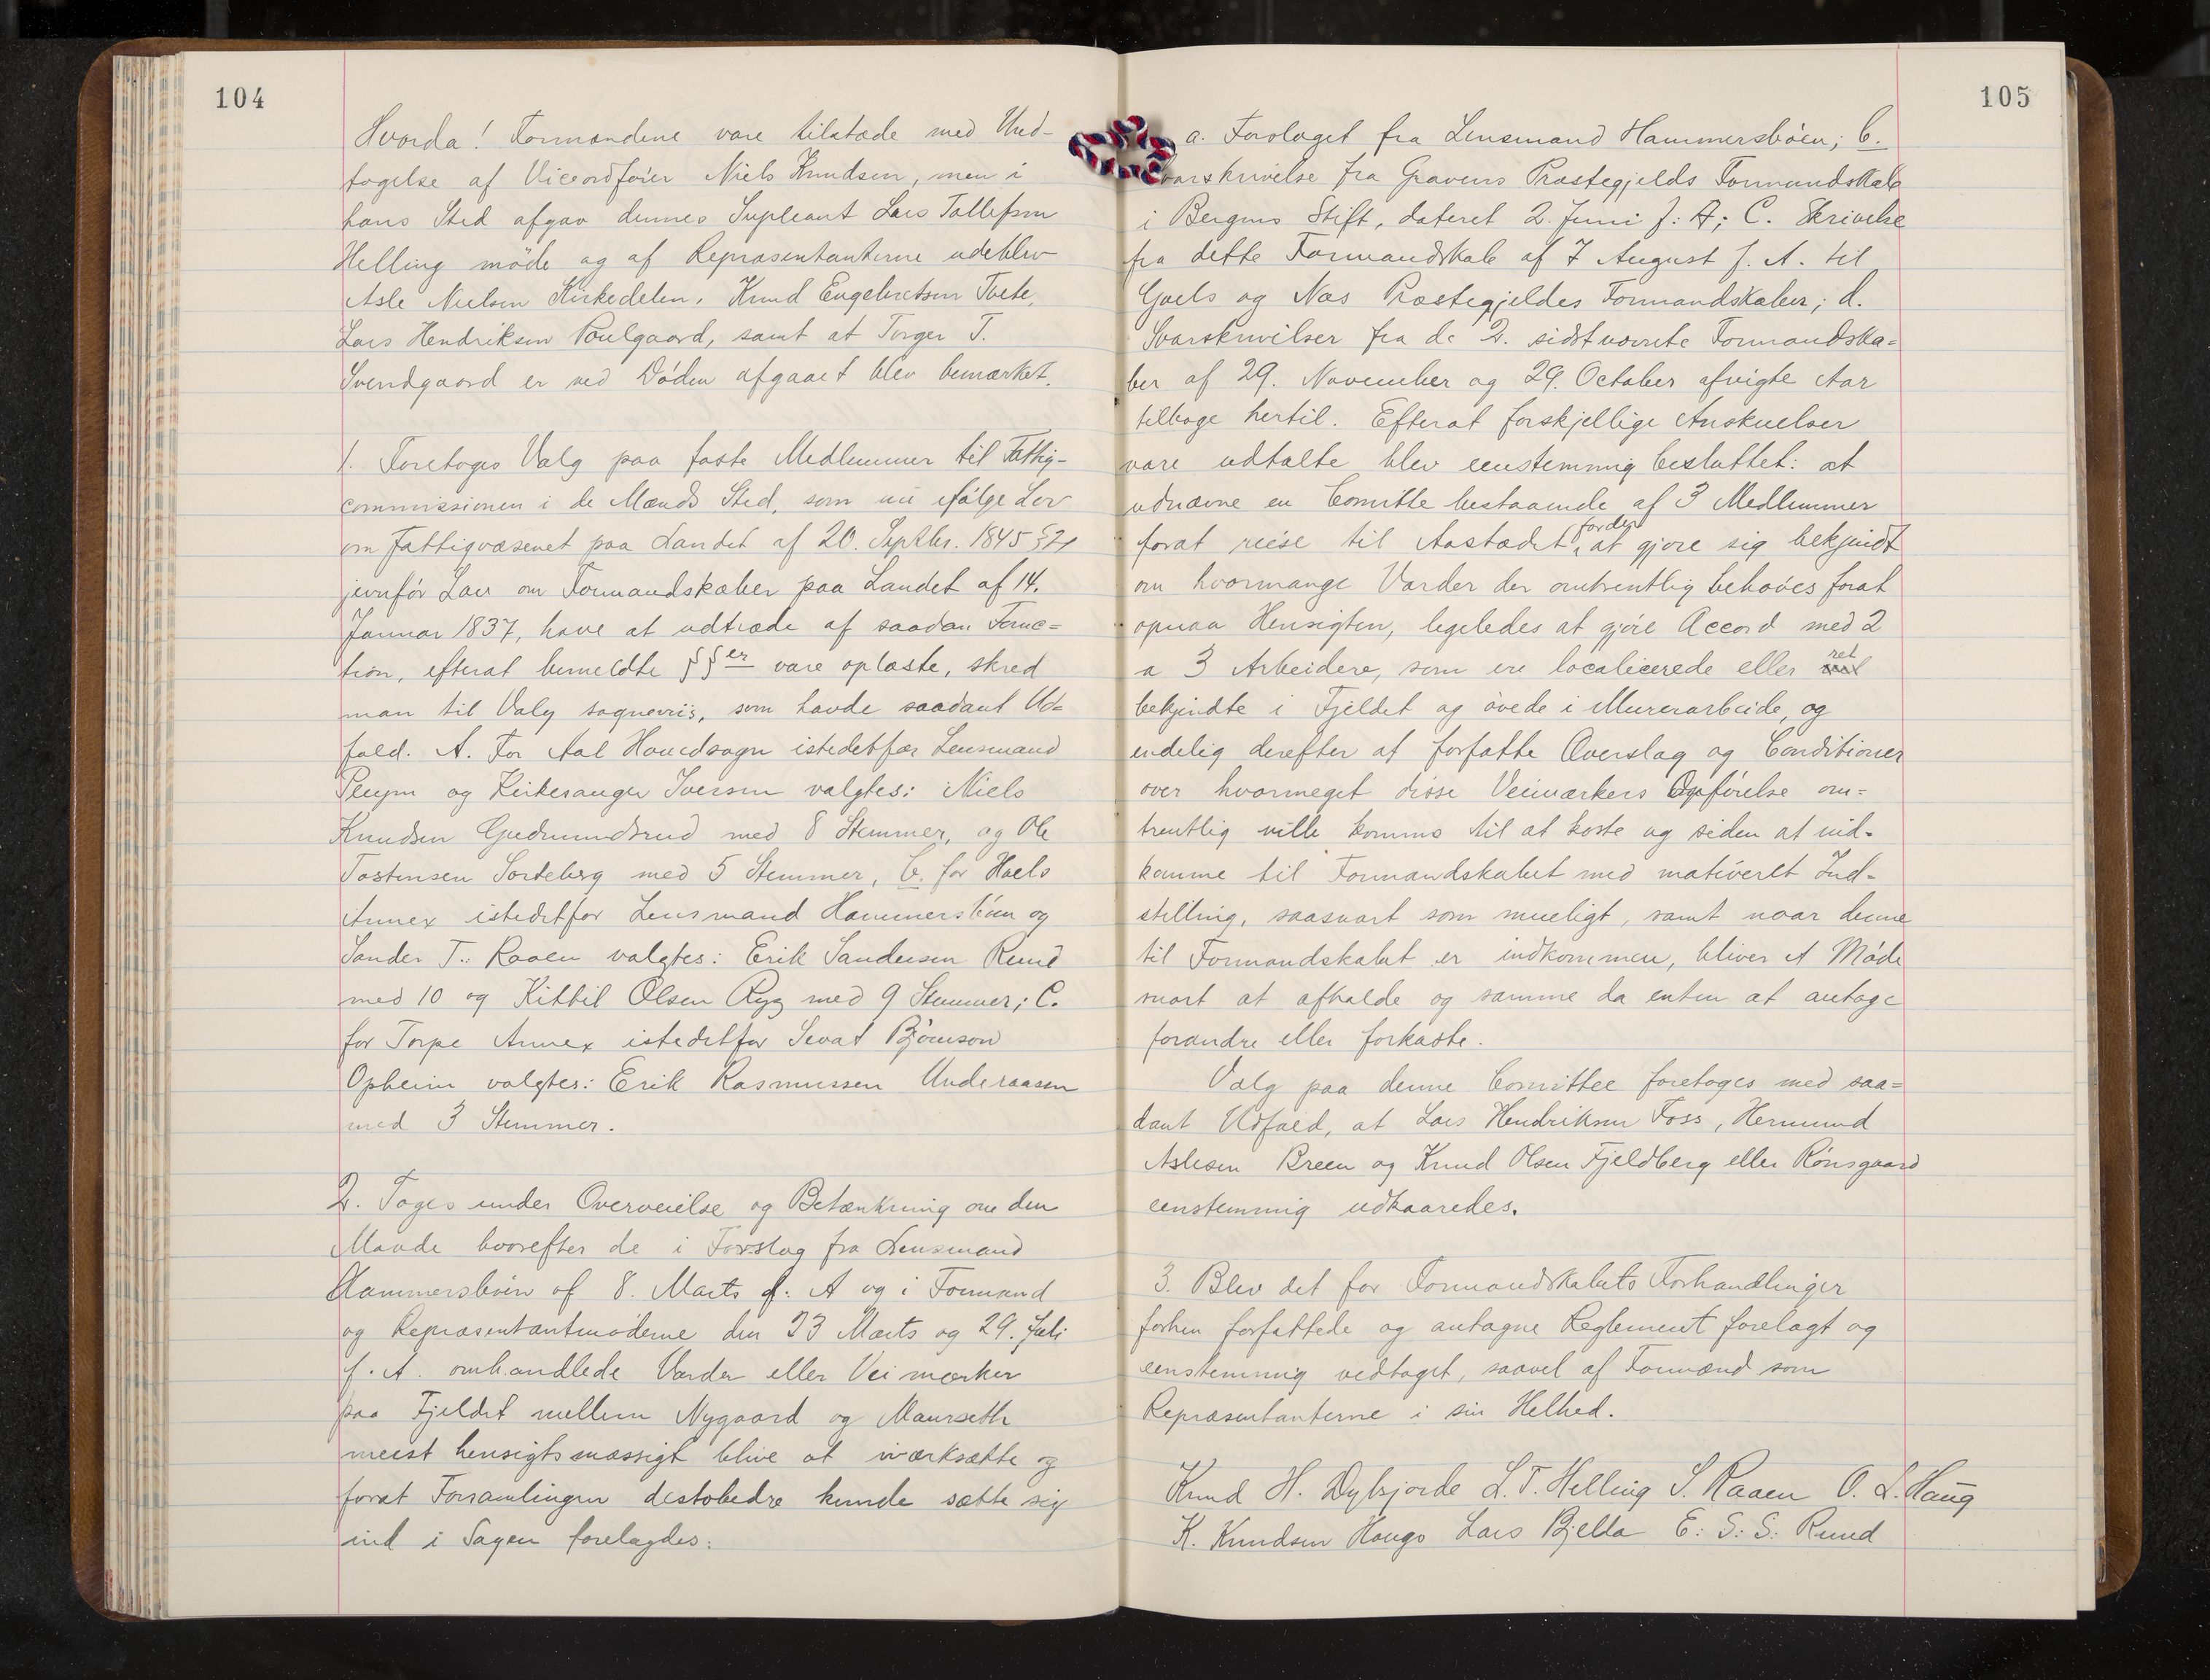 104
Hvorda! Formændene vare tilstæde med Und-
tagelse af Viceordfører Niels Knudsen, men i
hans Sted afgav dennes Supleant Lars Tollefsen
Helling møde og af Repræsentanterne udeblev
Asle Nielsen Kirkedelen, Knud Engebretsen Tvete,
Lars Hendriksen Poulgaard, samt at Torger T.
Svendgaard er ved Døden afgaaet blev bemærket.
1. Foretoges Valg paa faste Medlemmer til Fattig-
commissionen i de Mænds Sted, som nu ifølge Lov
om Fattigvæsenet paa Landet af 20. Septbr. 1845
jevnfør Lov om Formandskaber paa Landet af 14.
Januar 1837, have at udtræde af saadan Func=
tion, efterat bemeldte §§er vare oplæste, skred
man til Valg sogneviis, som havde saadant Ud=
fald. A. For Aal Hovedsogn istedetfor Lensmand
Pleym og Kirkesanger Iversen valgtes: Niels
Knudsen Gudmundsrud med 8 Stemmer, og Ole
Tostensen Sordeberg med 5 Stemmer, b. for Hoels
Annex istedetfor Lensmand Hammersbøen og
Sander T. Raaen valgtes: Erik Sandersen Ruud
med 10 og Kittil Olsen Ryg med 9 Stemmer; C.
for Torpe Annex istedetfor Sevat Bjørnson
Opheim valgtes: Erik Rasmussen Underaasen
med 3 Stemmer.
2. Toges under Overveielse og Betænkning om den
Maade hvorefter de i Forslag fra Lensmand
Hammersbøen af 8. Marts f. A og i Formand
og Repræsentantmøderne den 23 Marts og 29. Juli
f. A. omhandlede Varder eller Veimærker
paa Fjeldet mellem Nygaard og Maurseth
meest hensigtsmæssigt blive at iværksætte og
forat Forsamlingen destobedre kunde sætte sig
ind i Sagen forelagdes:
105
a. Forslaget fra Lensmand Hammersbøen; b.
Svarskrivelse fra Gravens Præstegjelds Formandskab
i Bergens Stift, dateret 2. Juni f. A; C. Skrivelse
fra dette Formandskab af 7 August f. A. til
Goels og Næs Præstegjeldes Formandskaber; d.
Svarskrivelser fra de 2. sidstnævnte Formandska=
ber af 29. November og 29. October afvigte Aar
tilbage hertil. Efterat forskjellige Anskuelser
vare udtalte blev eenstemmig besluttet: at
udnævne en Comitte bestaaende af 3 Medlemmer
forat reise til Aastædet, forder at gjøre sig bekjendt
om hvormange Varder der omtrentlig behøves forat
opnaa Hensigten, ligeledes at gjøre Accord med 2
a 3 Arbeidere, som ere localicerede eller ret
bekjendte i Fjeldet og øvede i Murerarbeide, og
endelig derefter at forfatte Overslag og Conditioner
over hvormeget disse Veimærkers Opførelse om=
trentlig ville komme til at koste og siden at ind-
komme til Formandskabet med motiveret Ind-
stilling, saasnart som mueligt, samt naar denne
til Formandskabet er indkommen, bliver et Møde
snart at afholde og samme da enten at antage
forandre eller forkaste.
Valg paa denne Comittee foretoges med saa=
dant Udfald, at Lars Hendriksen Foss, Hermund
Aslesen Breen og Knud Olsen Fjeldberg eller Rønsgaard
eenstemmig udkaaredes.
3. Blev det for Formandskabets Forhandlinger
forhen forfattede og antagne Reglement forelagt og
eenstemmig vedtaget, saavel af Formænd som
Repræsentanterne i sin Helhed.
Knud H. Dybsjorde L. T. Helling S. Raaen O. L. Haug
K. Knudsen Haugo Lars Bjella E: S: S: Ruud